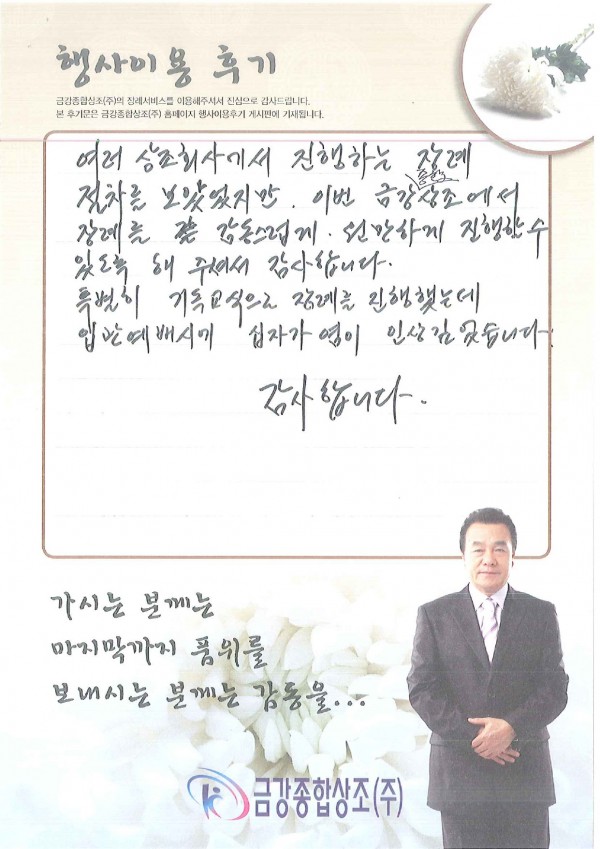 행사이용 후기
금강종합상조(주)의 장례서비스를 이용해주셔서 진심으로 감사드립니다.
본 후기문은 금강종합상조(주) 홈페이지 행사이용후기 게시판에 기재됩니다.
여러 상조회사에서 진행하는 장례
절차를 보았었지만, 이번 금강종합상조에서
장례를 감동스럽게. 원만하게 진행할 수
있도록 해 주셔서 감사합니다.
특별히 기독교식으로 장례를 진행했는데
입관예배시에 십자가 염이 인상깊었습니다.
감사합니다.
가시는 분께는
마지막까지 품위를
보내시는 분께는 감동을...
금강종합상조(주)